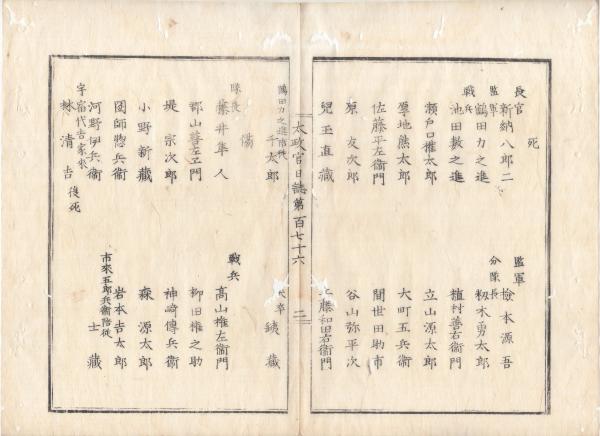 死
長官 新納八郎二
監軍 檢本源吾
監軍 鶴田力之進
分隊長 籾木勇太郎
戰兵 池田數之進
植村善右衞門
瀬戸口權太郎
立山源太郎
厚地熊太郎
大町五兵衞
佐藤平左衞門
間世田助市
原 友次郎
谷山弥平次
兒玉直藏
藤和田右衞門
太政官日誌第百七十六
二
鶴田力之進陪從
千太郎
夫卒 銕藏
傷
隊長 藤井隼人
戰兵 高山權左衞門
郡山善左エ門
柳田權之助
堤 宗次郎
神崎傳兵衞
小野新藏
森 源太郎
圖師惣兵衞
岩本吉太郎
河野伊兵衞
市來五郎兵衞陪從
士藏
宇宿代吉家來
林清吉 後死